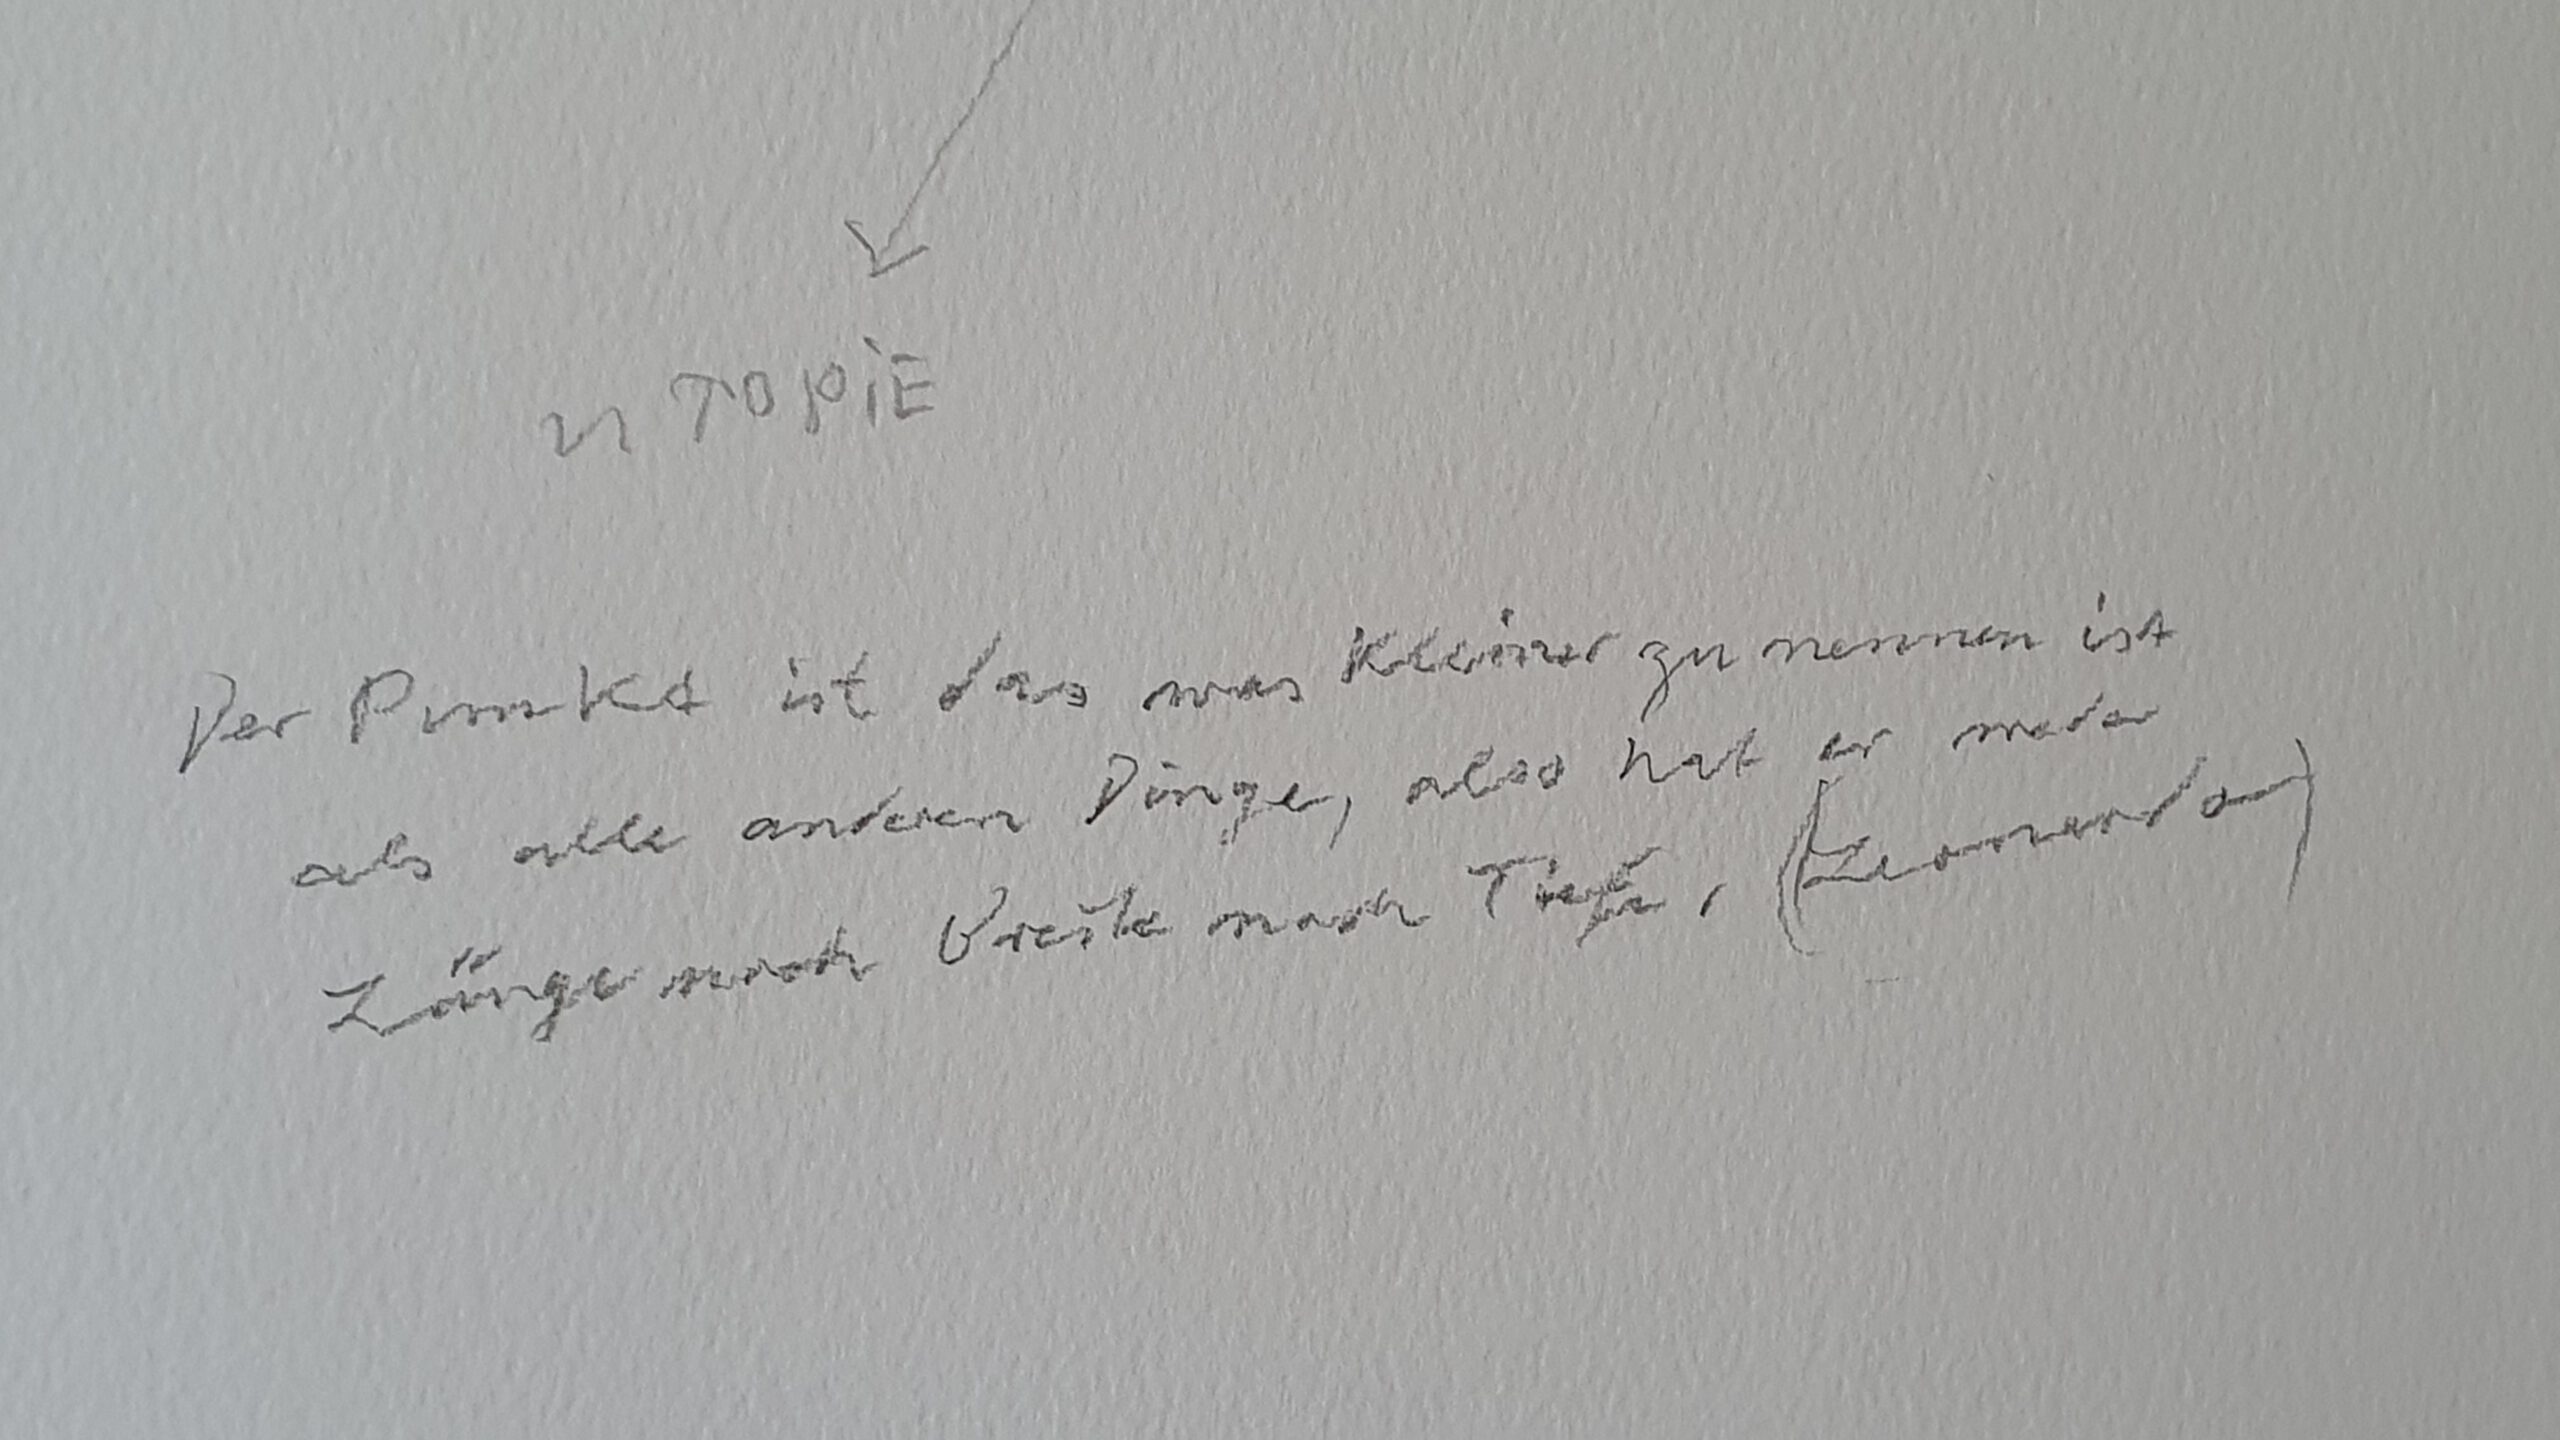 UTOPiE
Der Punkt ist das was kleiner zu nennen ist
als alle anderen Dinge, also hat er weder
Länge noch Breite noch Tiefe, (Leonardo)